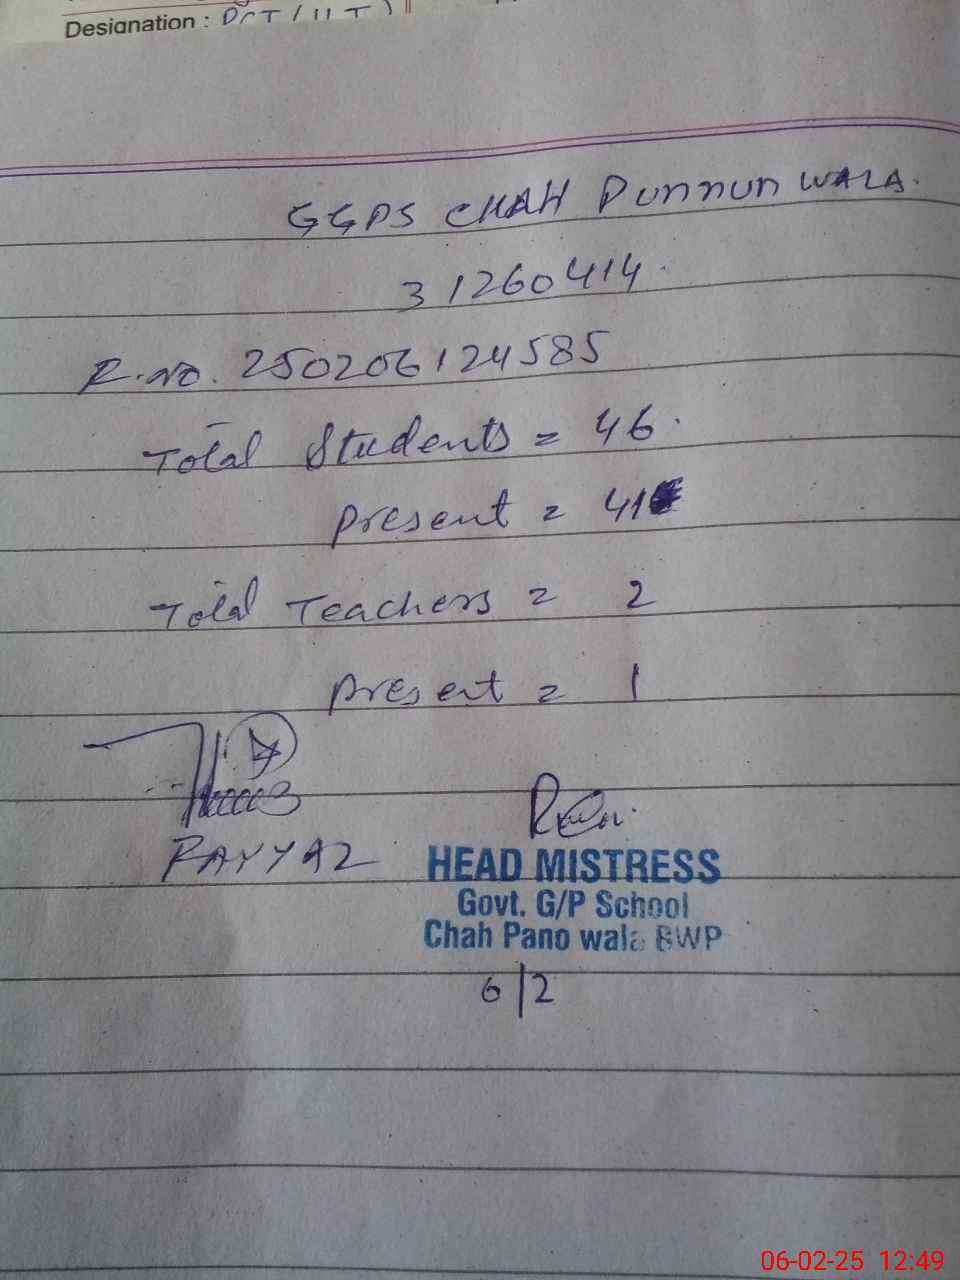 Designation :
GGPS CHAH PUNNUN WALA.
31260414.
R.No. 250206124585
Total Students = 46.
present = 41
Total Teachers = 2
present = 1
FAYYAZ
HEAD MISTRESS
Govt. G/P School
Chah Pano wala BWP
6/2
06-02-25 12:49